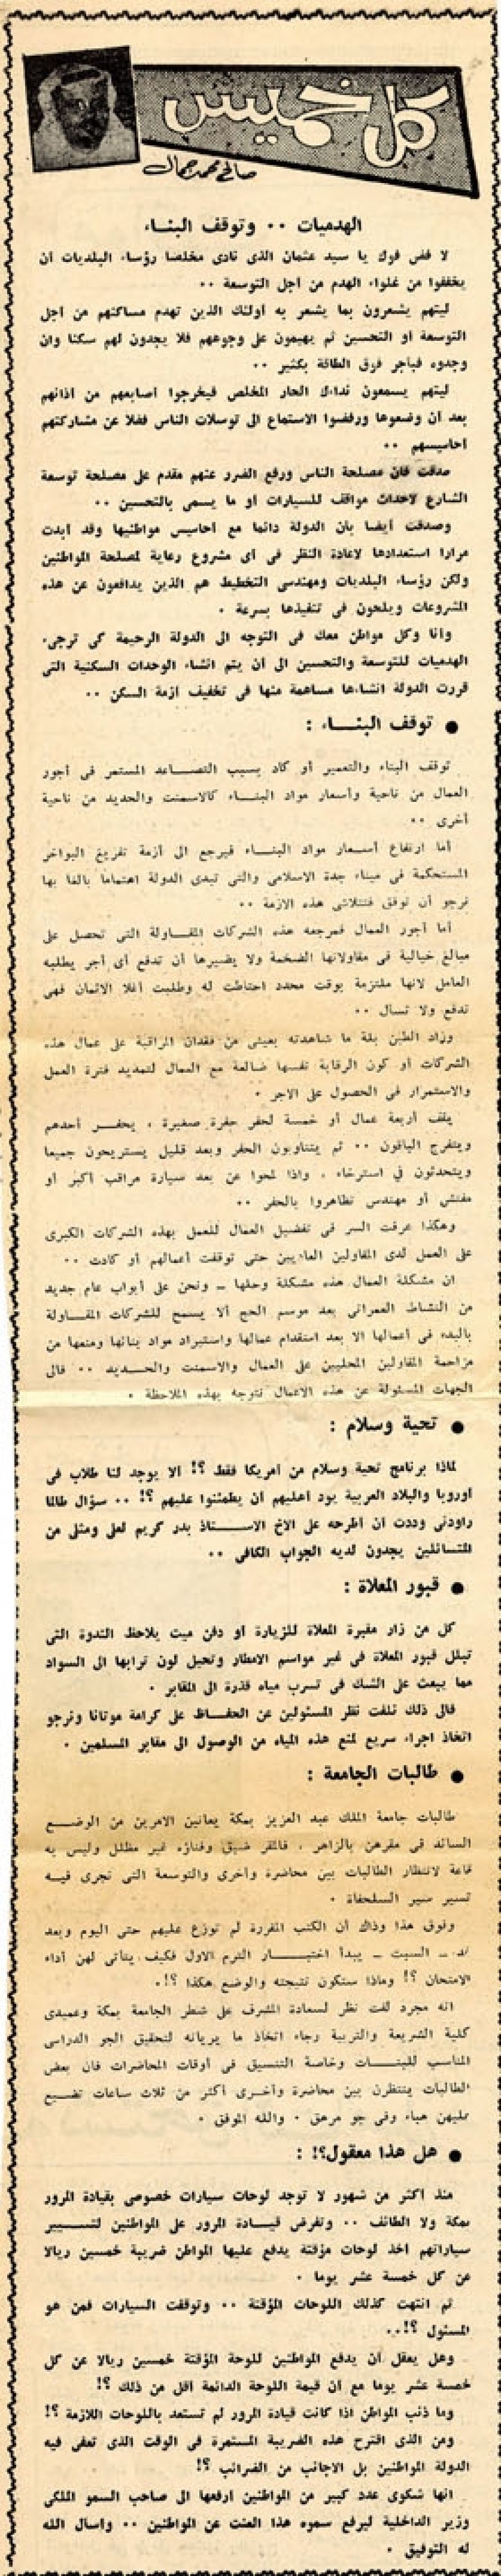 كل خميس
صالح محمد جمال
الهدميات ٠٠ وتوقف البنــاء
لا فض فوك يا سيد عثمان الذى نادى مخلصا رؤساء البلديات أن
يخففوا من غلواء الهدم من أجل التوسعة ٠٠
ليتهم يشعرون بما يشعر به أولئك الذين تهدم مساكنهم من أجل
التوسعة أو التحسين ثم يهيمون على وجوههم فلا يجدون لهم سكنا وان
وجدوه فبأجر فوق الطاقة بكثير ٠٠
ليتهم يسمعون نداءك الحار المخلص فيخرجوا أصابعهم من آذانهم
بعد أن وضعوها ورفضوا الاستماع الى توسلات الناس فضلا عن مشاركتهم
أحاسيسهم ٠٠
صدقت فان مصلحة الناس ورفع الضرر عنهم مقدم على مصلحة توسعة
الشارع لاحداث مواقف للسيارات أو ما يسمى بالتحسين ٠٠
وصدقت أيضا بأن الدولة دائما مع أحاسيس مواطنيها وقد أبدت
مرارا استعدادها لاعادة النظر فى أى مشروع رعاية لمصلحة المواطنين
ولكن رؤساء البلديات ومهندسى التخطيط هم الذين يدافعون عن هذه
المشروعات ويلحون فى تنفيذها بسرعة ٠
وأنا وكل مواطن معك فى التوجه الى الدولة الرحيمة كى ترجىء
الهدميات للتوسعة والتحسين الى أن يتم انشاء الوحدات السكنية التى
قررت الدولة انشاءها مساهمة منها فى تخفيف أزمة السكن ٠٠
● توقف البنــــاء :
توقف البناء والتعمير أو كاد بسبب التصــاعد المستمر فى أجور
العمال من ناحية وأسعار مواد البنــاء كالاسمنت والحديد من ناحية
أخرى ٠٠
أما ارتفاع أســعار مواد البنــاء فيرجع الى أزمة تفريغ البواخر
المستحكمة فى ميناء جدة الاسلامى والتى تبدى الدولة اهتماما بالغا بها
نرجو أن توفق فتتلاشى هذه الازمة ٠٠
أما أجور العمال فمرجعه هذه الشركات المقــاولة التى تحصل على
مبالغ خيالية فى مقاولاتها الضخمة ولا يضيرها أن تدفع أى أجر يطلبه
العامل لانها ملتزمة بوقت محدد احتاطت له وطلبت أغلا الاثمان فهى
تدفع ولا تسأل ٠٠
وزاد الطين بلة ما شاهدته بعينى من فقدان المراقبة على عمال هذه
الشركات أو كون الرقابة نفسها ضالعة مع العمال لتمديد فترة العمل
والاستمرار فى الحصول على الاجر ٠
يقف أربعة عمال أو خمسة لحفر حفرة صغيرة ، يحفــر أحدهم
ويتفرج الباقون ٠٠ ثم يتناوبون الحفر وبعد قليل يستريحون جميعا
ويتحدثون في استرخاء ، واذا لمحوا عن بعد سيارة مراقب أكبر أو
مفتش أو مهندس تظاهروا بالحفر ٠٠
وهكذا عرفت السر فى تفضيل العمال للعمل بهذه الشركات الكبرى
على العمل لدى المقاولين العاديين حتى توقفت أعمالهم أو كادت ٠٠
ان مشكلة العمال هذه مشكلة وحلها ــ ونحن على أبواب عام جديد
من النشاط العمرانى بعد موسم الحج ألا يسمح للشركات المقــاولة
بالبدء فى أعمالها الا بعد استقدام عمالها واستيراد مواد بنائها ومنعها من
مزاحمة المقاولين المحليين على العمال والاسمنت والحــديد ٠٠ فالى
الجهات المسئولة عن هذه الاعمال نتوجه بهذه الملاحظة ٠
● تحية وسلام :
لماذا برنامج تحية وسلام من أمريكا فقط ؟! ألا يوجد لنا طلاب فى
أوروبا والبلاد العربية يود أهليهم أن يطمئنوا عليهم ؟! ٠٠ سؤال طالما
راودنى وددت أن أطرحه على الاخ الاســـتاذ بدر كريم لعلى ومثلى من
المتسائلين يجدون لديه الجواب الكافى ٠٠
● قبور المعلاة :
كل من زار مقبرة المعلاة للزيارة أو دفن ميت يلاحظ الندوة التى
تبلل قبور المعلاة فى غير مواسم الامطار وتحيل لون ترابها الى السواد
مما يبعث على الشك فى تسرب مياه قذرة الى المقابر ٠
فالى ذلك نلفت نظر المسئولين عن الحفــاظ على كرامة موتانا ونرجو
اتخاذ اجراء سريع لمنع هذه المياه من الوصول الى مقابر المسلمين ٠
● طالبات الجامعة :
طالبات جامعة الملك عبد العزيز بمكة يعانين الامرين من الوضــع
السائد فى مقرهن بالزاهر ، فالمقر ضيق وفناؤه غير مظلل وليس به
قاعة لانتظار الطالبات بين محاضرة وأخرى والتوسعة التى تجرى فيــه
تسير سير السلحفاة ٠
وفوق هذا وذاك أن الكتب المقررة لم توزع عليهم حتى اليوم وبعد
غد ــ السبت ــ يبدأ اختبــــار الترم الاول فكيف يتأتى لهن أداء
الامتحان ؟! وماذا ستكون نتيجته والوضع هكذا ؟!٠
انه مجرد لفت نظر لسعادة المشرف على شطر الجامعة بمكة وعميدى
كلية الشريعة والتربية رجاء اتخاذ ما يريانه لتحقيق الجو الدراسى
المناسب للبنــــات وخاصة التنسيق فى أوقات المحاضرات فان بعض
الطالبات ينتظرن بين محاضرة وأخــرى أكثر من ثلاث ساعات تضــيع
عليهن هباء وفى جو مرهق ٠ والله الموفق ٠
● هل هذا معقول؟! :
منذ أكثر من شهور لا توجد لوحات سيارات خصوصى بقيادة المرور
بمكة ولا الطائف ٠٠ وتفرض قيــادة المرور على المواطنين لتســيير
سياراتهم أخذ لوحات مؤقتة يدفع عليها المواطن ضريبة خمسين ريالا
عن كل خمسة عشر يوما ٠
ثم انتهت كذلك اللوحات المؤقتة ٠٠ وتوقفت السيارات فمن هو
المسئول ؟!٠٠
وهل يعقل أن يدفع المواطنين للوحة المؤقتة خمسين ريالا عن كل
خمسة عشر يوما مع أن قيمة اللوحة الدائمة أقل من ذلك ؟!
وما ذنب المواطن اذا كانت قيادة المرور لم تستعد باللوحات اللازمة ؟!
ومن الذى اقترح هذه الضريبة المستمرة فى الوقت الذى تعفى فيه
الدولة المواطنين بل الاجانب من الضرائب ؟!
انها شكوى عدد كبير من المواطنين أرفعها الى صاحب السمو الملكى
وزير الداخلية ليرفع سموه هذا العنت عن المواطنين ٠٠ وأسأل الله
له التوفيق ٠